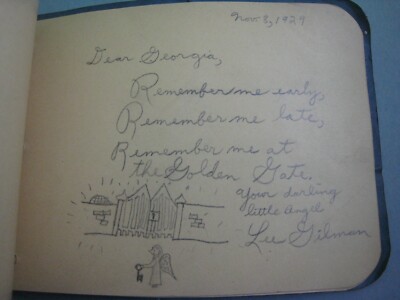 Nov 8, 1929
Dear Georgia,
Remember me early,
Remember me late,
Remember me at
the Golden Gate.
Your darling
little angel
Lee Gilman